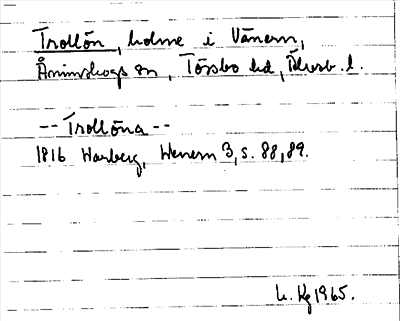 Trollön, holme i Vänern,
Ånimskogs sn, Tössbo hd, Älvsb. l.
-- Trollöna --
1816 Warberg, Wenern 3, s. 88, 89.
L. Kg 1965.